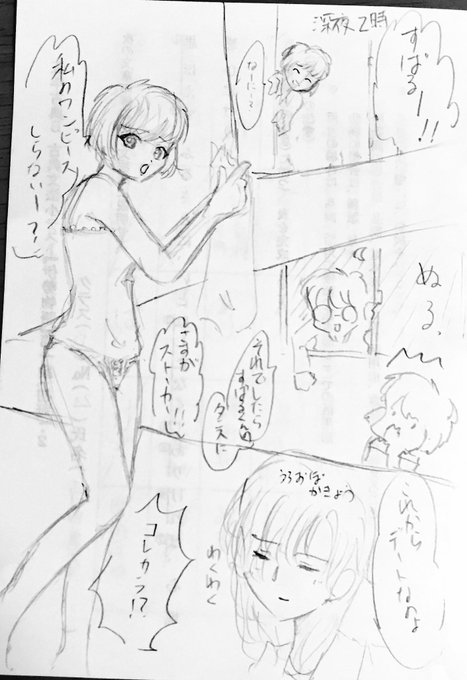 深夜2時
すばるー!!
なーにー?
私のワンピース
しらないー?
ぬる、
それでしたら
すばるくんの
タンスに
さすが
ストーカー!!
これから
デートなのよ
うろおぼ
かきょう
わくわく
コレカラ!?